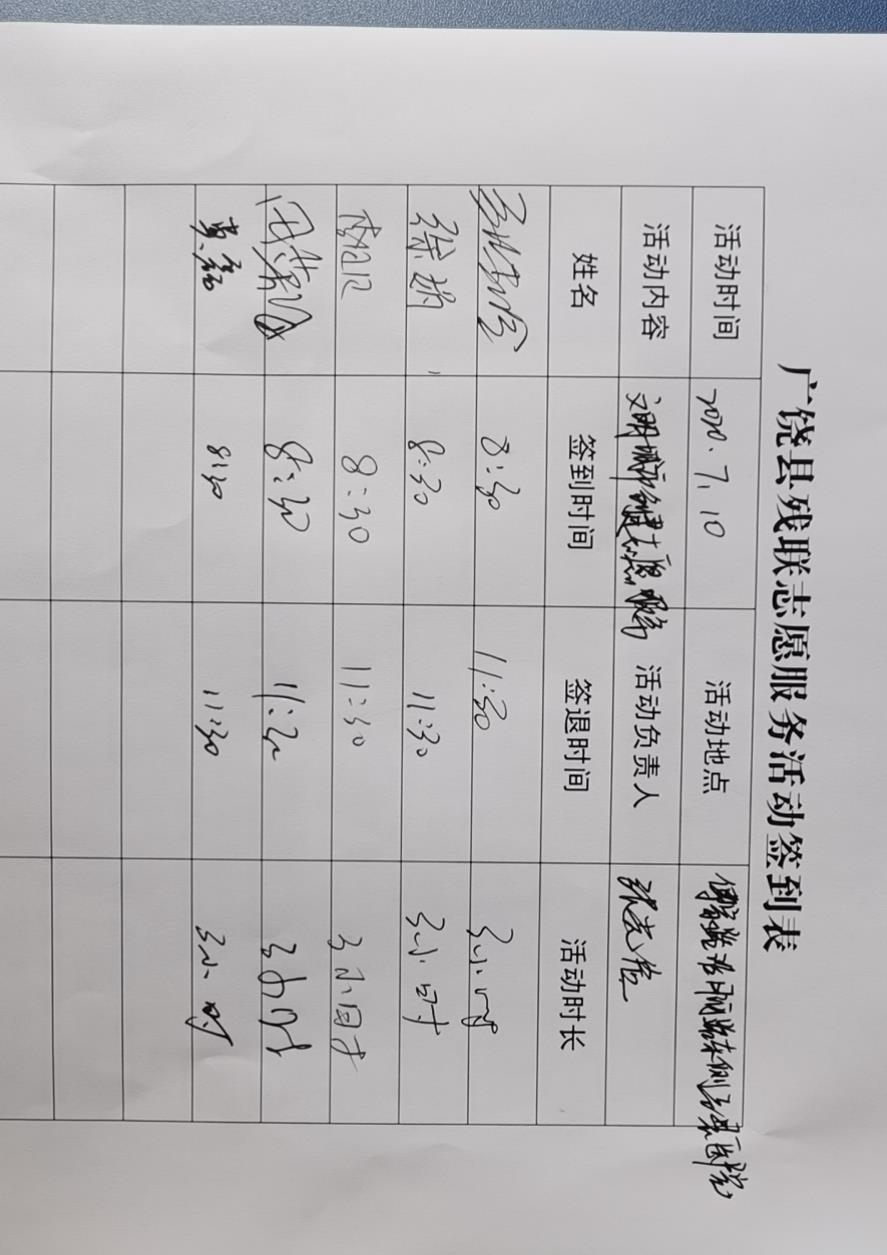 广饶县残联志愿服务活动签到表
活动时间 2020.7.10 活动地点
活动内容 文明城市创建志愿服务 活动负责人
姓名 签到时间 签退时间 活动时长
8:30 11:30 3小时
徐娟 8:30 11:30 3小时
8:30 11:30 3小时
8:30 11:30 3小时
黄磊 8:30 11:30 3小时